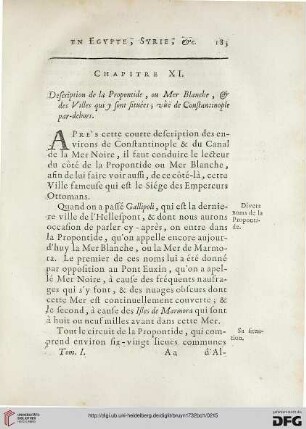 EN EGYPTE, SYRIE, &c. 185
CHAPITRE XI.
Description de la Propontide, ou Mer Blanche, &
des Villes qui y sont situées, vûë de Constantinople
par-dehors.
APRE's cette courte description des en-
virons de Constantinople & du Canal
de la Mer Noire, il faut conduire le lecteur
du côté de la Propontide ou Mer Blanche,
afin de lui faire voir aussi, de ce côté-là, cette
Ville fameuse qui est le Siége des Empereurs
Ottomans.
Quand on a passé Gallipoli, qui est la dernie-
re ville de l'Hellespont, & dont nous aurons
occasion de parler cy-après, on entre dans
la Propontide, qu'on appelle encore aujour-
d'huy la Mer Blanche, ou la Mer de Marmo-
ra. Le premier de ces noms lui a été donné
par opposition au Pont Euxin, qu'on a apel-
lé Mer Noire, à cause des fréquents naufra-
ges qui s'y font, & des nuages obscurs dont
cette Mer est continuellement couverte; &
le second, à cause des Isles de Marmora qui sont
à huit ou neuf milles avant dans cette Mer.
Tout le circuit de la Propontide, qui com-
prend environ six-vingt lieuës communes
Tom. I. Aa d'Al-
Divers
noms de la
Proponti-
de.
Sa situa-
tion.
http://digi.ub.uni-heidelberg.de/diglit/bruyn1732bd1/0215
UNIVERSITÄTS-
BIBLIOTHEK
HEIDELBERG
Gefördert durch die
DFG